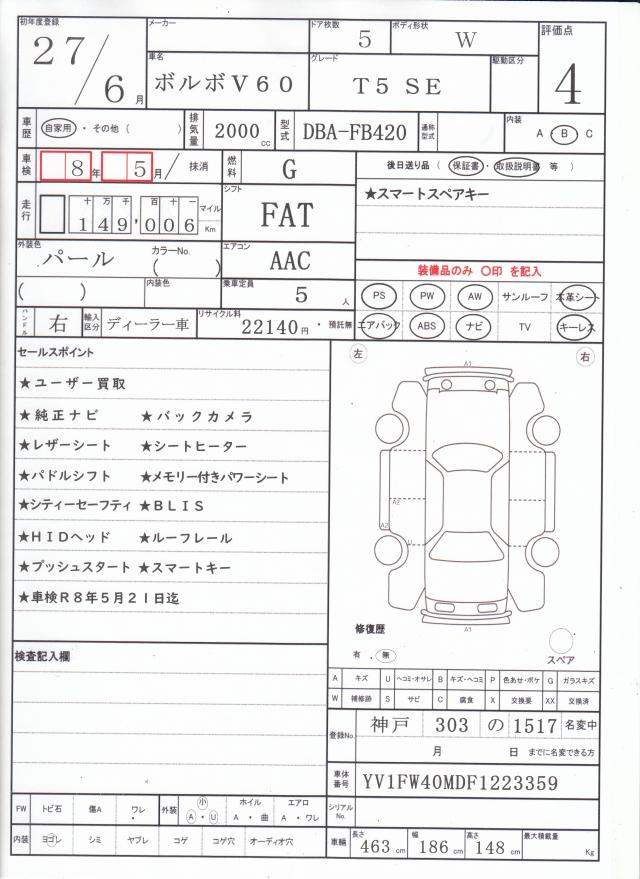 初年度登録 27/6月
メーカー
ドア枚数 5
ボディ形状 W
評価点 4
車名 ボルボV60
グレード T5 SE
駆動区分
車歴 自家用・その他( )
排気量 2000cc
型式 DBA-FB420
通称型式
内装 A・B・C
車検 8年5月/ 抹消
燃料 G
後日送り品(保証書・取扱説明書 等)
★スマートスペアキー
走行 十万千百十一 149,006 マイル Km
シフト FAT
外装色 パール
カラーNo. ( )
エアコン AAC
装備品のみ 〇印 を記入
( )
内装色
乗車定員 5人
PS PW AW サンルーフ 本革シート
エアバック ABS ナビ TV キーレス
ハンドル 右
輸入区分 ディーラー車
リサイクル料 22140円・預託無
セールスポイント
左 右
A1
★ユーザー買取
★純正ナビ ★バックカメラ
★レザーシート ★シートヒーター
★パドルシフト ★メモリー付きパワーシート
A2
★シティーセーフティ ★BLIS
A2
★HIDヘッド ★ルーフレール
U
★プッシュスタート ★スマートキー
★車検R8年5月21日迄
A1
修復歴
有 . 無
スペア
検査記入欄
A キズ U ヘコミ・オサレ B キズ・ヘコミ P 色あせ・ボケ G ガラスキズ
W 補修跡 S サビ C 腐食 X 交換要 XX 交換済
登録No. 神戸 303 の 1517 名変中
月 日 までに名変できる方
車体番号 YV1FW40MDF1223359
シリアルNo.
FW トビ石 傷A ワレ
外装 小 A・U ホイル A・曲 エアロ A・ワレ
内装 ヨゴレ シミ ヤブレ コゲ コゲ穴 オーディオ穴
車輛 長さ 463cm 幅 186cm 高さ 148cm 最大積載量 Kg